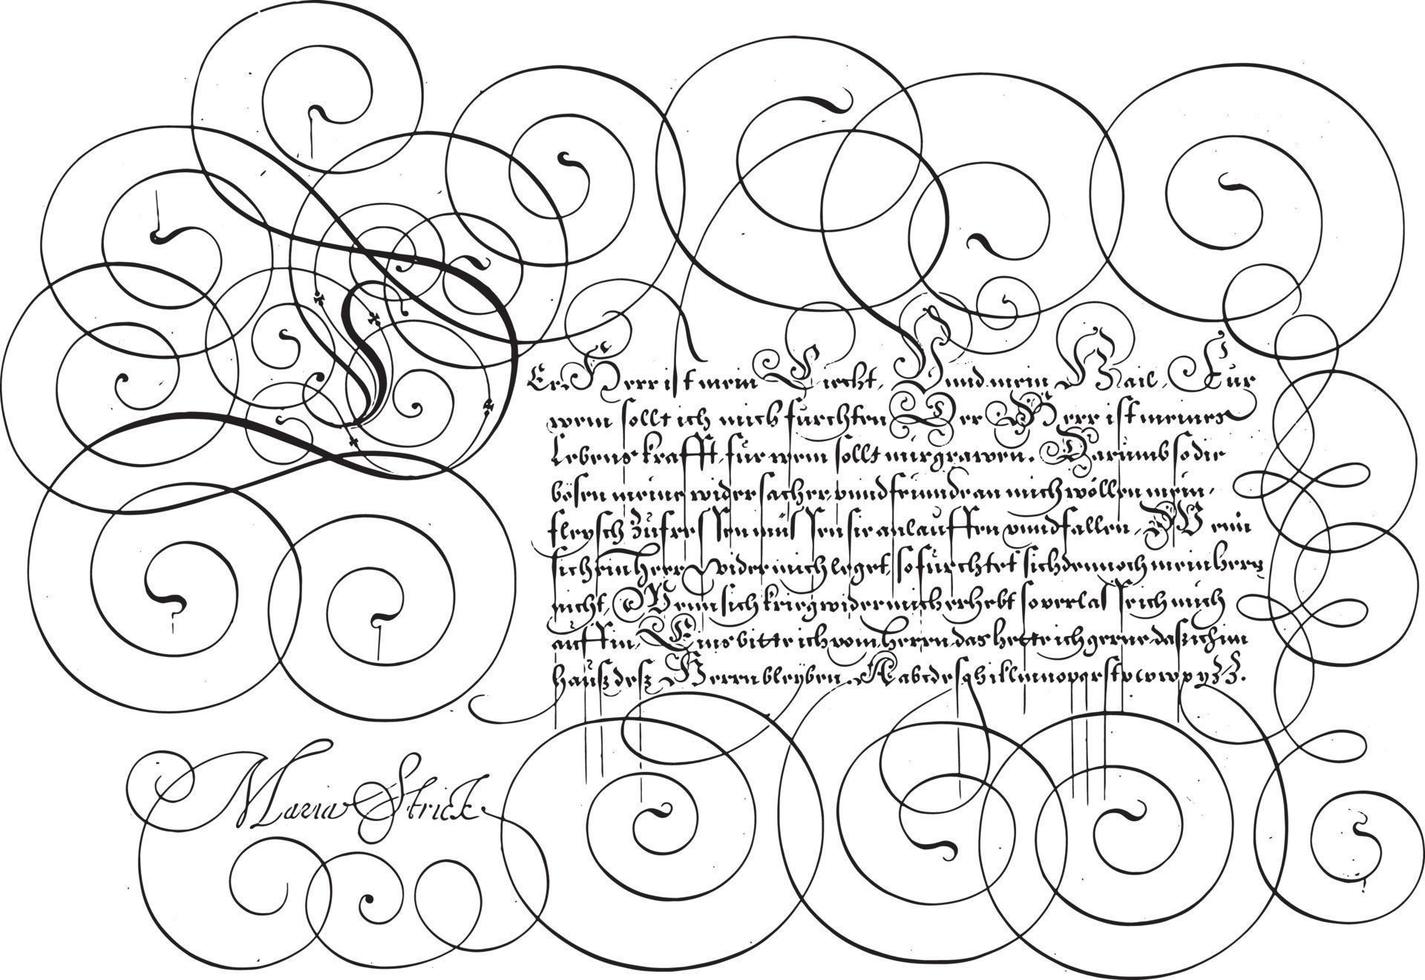 Der Herr ist mein Liecht, Und mein Hail, Fur
wem sollt ich mich furchten. Der Herr ist meines
Lebens krafft, für wem sollt mir grawen. Darumb so die
bösen meine widersacher unnd freunde an mich wöllen mein
fleysch zufressen müssen sie anlauffen unnd fallen. Wenn
sich ein Heer wider mich leget, so furchtet sich dennoch mein hertz
nicht. Wenn sich krieg wider mich erhebt so verlasse ich mich
auff in. Eins bitte ich vom herren das hette ich gerne dasz ich im
hausz desz Herren bleyben. A abcdefghiklmnopqrstvwxyz z.
Maria Strick